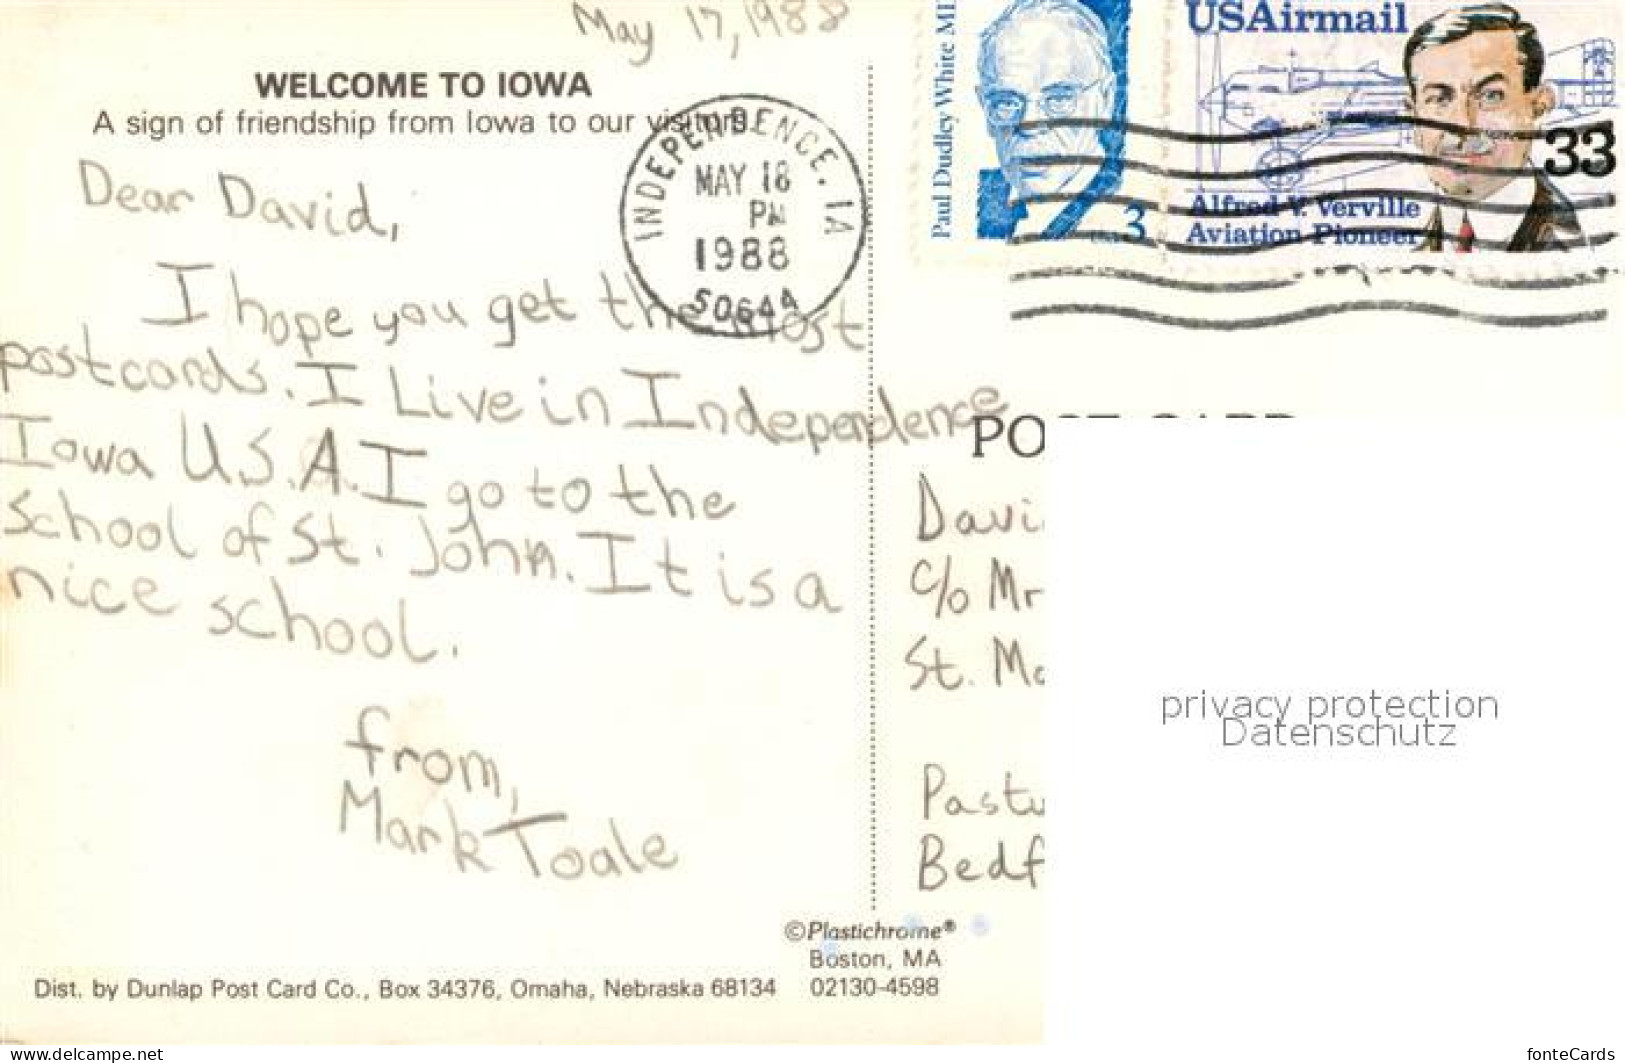 May 17, 1988
WELCOME TO IOWA
A sign of friendship from Iowa to our visitors
Dear David,
I hope you get the most
postcards. I Live in Independence
Iowa U.S.A. I go to the
School of St. John. It is a
nice school.
from,
Mark Toale
INDEPENDENCE, IA
MAY 18
PM
1988
50644
Paul Dudley White MD
3
USAirmail
33
Alfred V. Verville
Aviation Pioneer
POST CARD
Davi
c/o Mr
St. Ma
Pastu
Bedf
privacy protection
Datenschutz
©Plastichrome®
Boston, MA
02130-4598
Dist. by Dunlap Post Card Co., Box 34376, Omaha, Nebraska 68134
www.delcampe.net
fonteCards